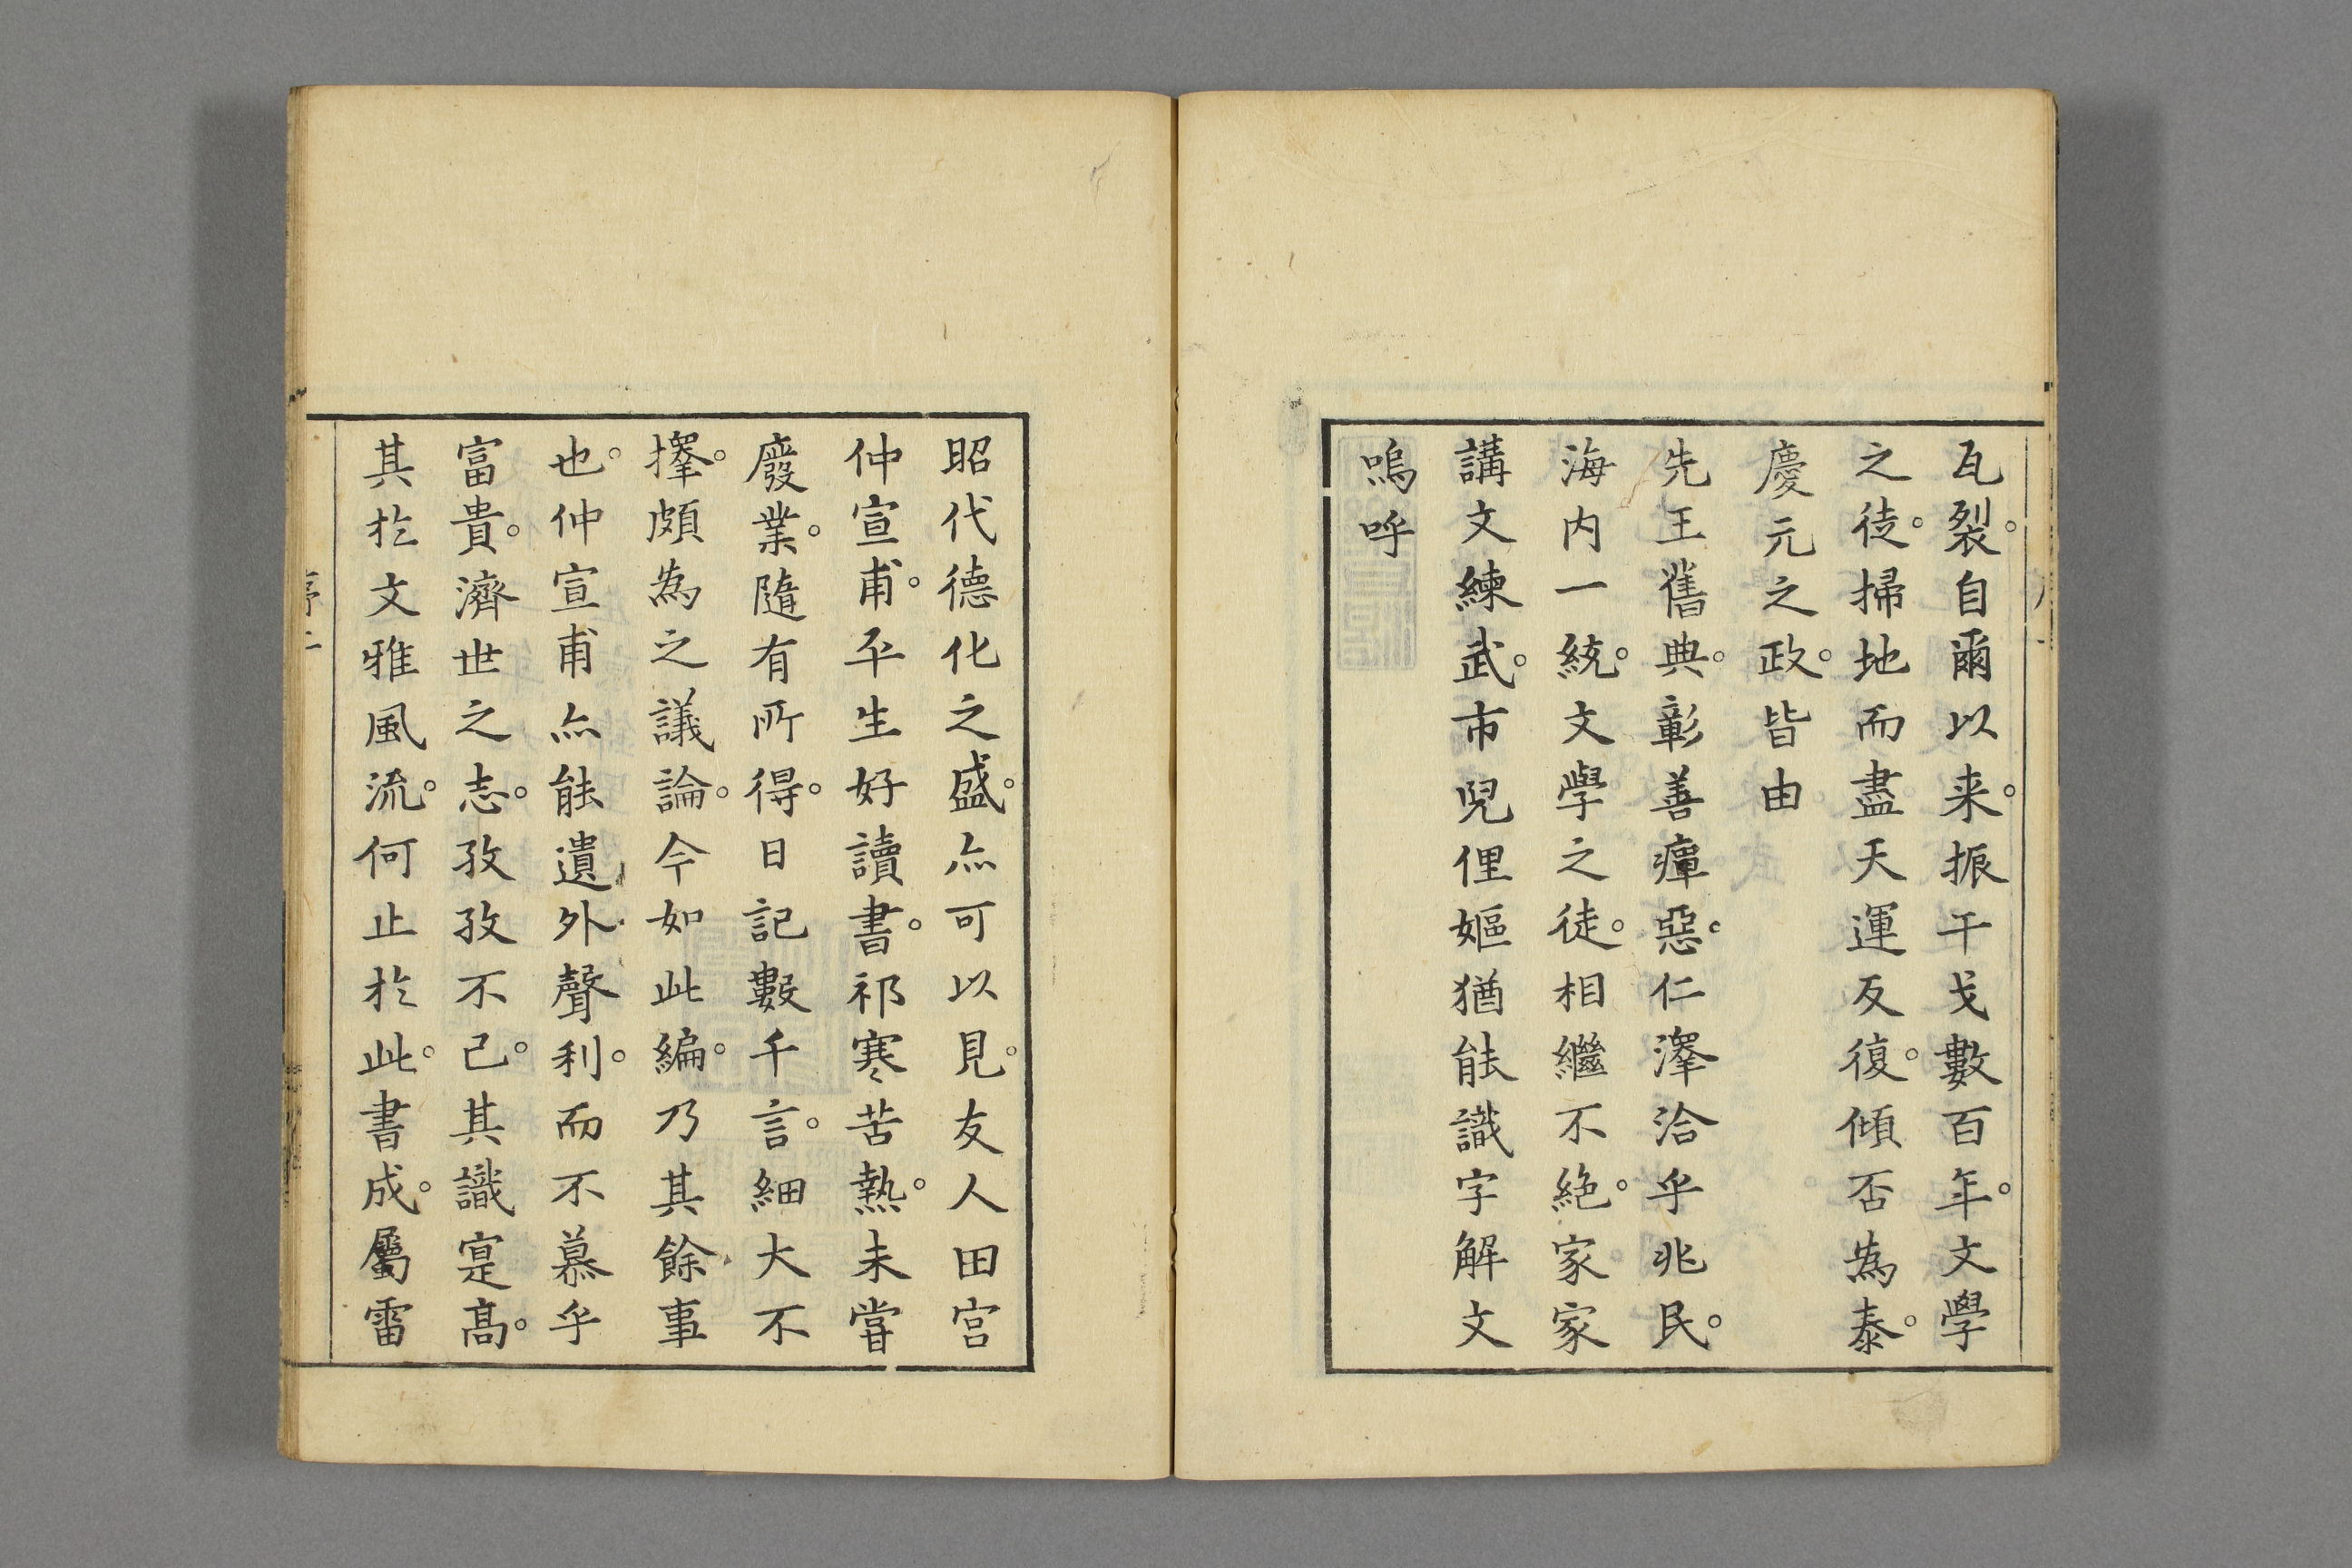 瓦裂。自爾以来。振干戈數百年。文學
之徒。掃地而盡天運反復。傾否為泰。
慶元之政。皆由
先王舊典。彰善癉惡。仁澤洽乎兆民。
海内一統。文學之徒。相繼不絶。家家
講文練武。市兒俚嫗猶能識字解文
嗚呼
昭代德化之盛。亦可以見。友人田宫
仲宣甫。平生好讀書。祁寒苦熱。未嘗
廢業。隨有所得。日記數千言。細大不
擇。頗為之議論。今如此編。乃其餘事
也。仲宣甫亦能遺外聲利。而不慕乎
富貴。濟世之志。孜孜不已。其識寔高。
其於文雅風流。何止於此。書成。屬雷
序二